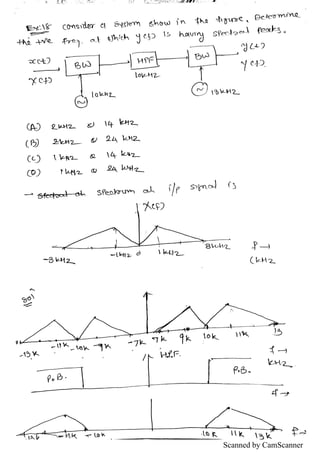 Ex:18 Consider a system show in the figure, Determine
the +ve freq. at which y(f) is having spectral peaks.
x(t)
X(f)
BW
HPF
BW
y(t)
Y(f)
10kHz
~
10kHz
~
13kHz
(A) 2kHz & 14 kHz
(B) 2kHz & 24 kHz
(C) 1kHz & 14 kHz
(D) 1kHz & 24 kHz
→ spectrum of i/p signal is
X(f)
-3kHz -1kHz 0 1kHz 3kHz f→
(kHz)
Sol
-13K -11K -10K -9K -7K 7K 9K 10K 11K 13
f→
kHz
H.P.F.
P.B. P.B.
f→
-11K -10K 10K 11K 13K f→
Scanned by CamScanner